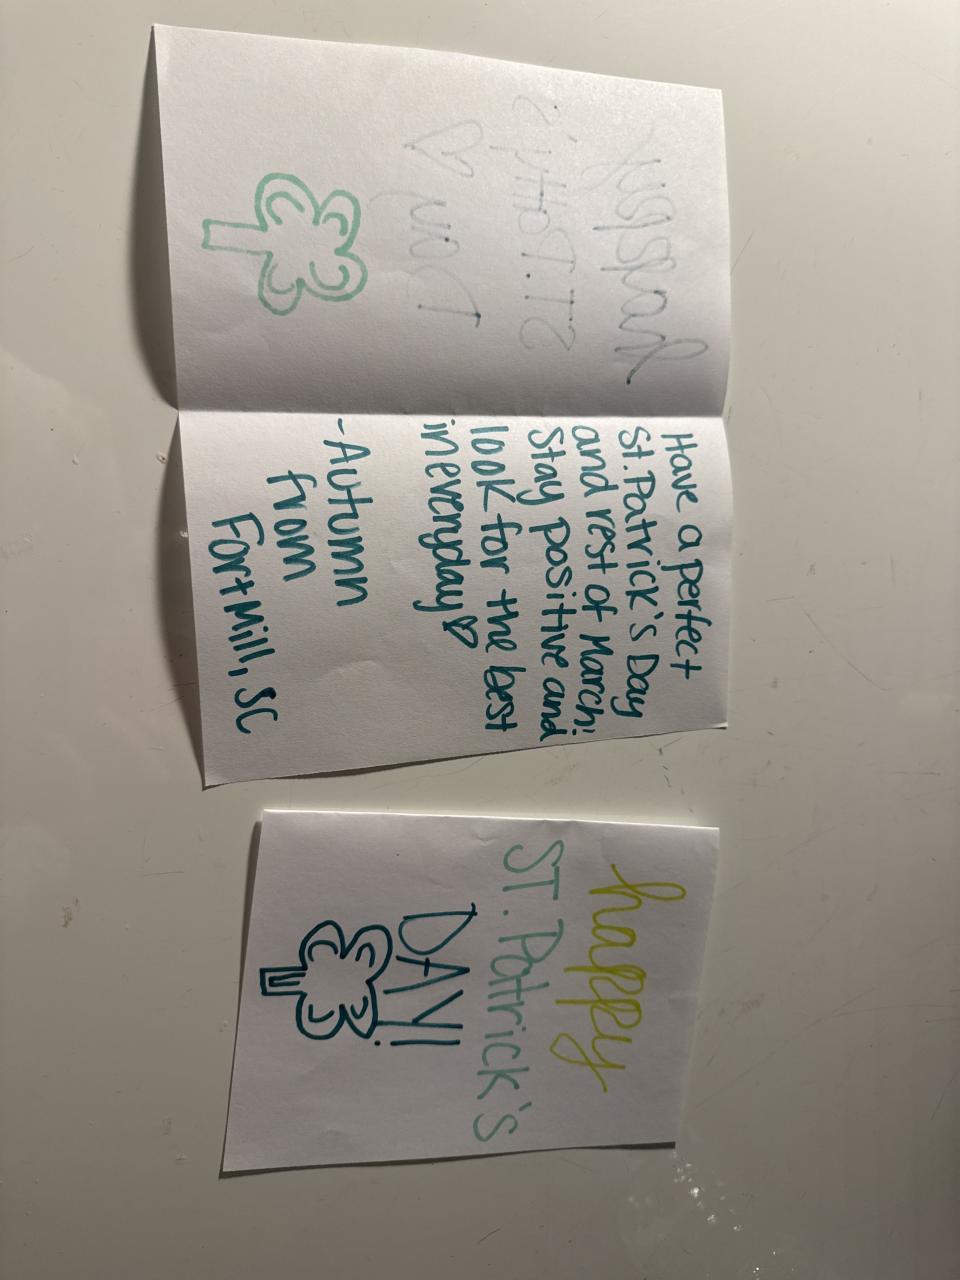 Have a perfect
St. Patrick's Day
and rest of March!
Stay positive and
look for the best
in everyday
-Autumn
from
Fort Mill, SC
happy
ST. Patrick's
DAY!